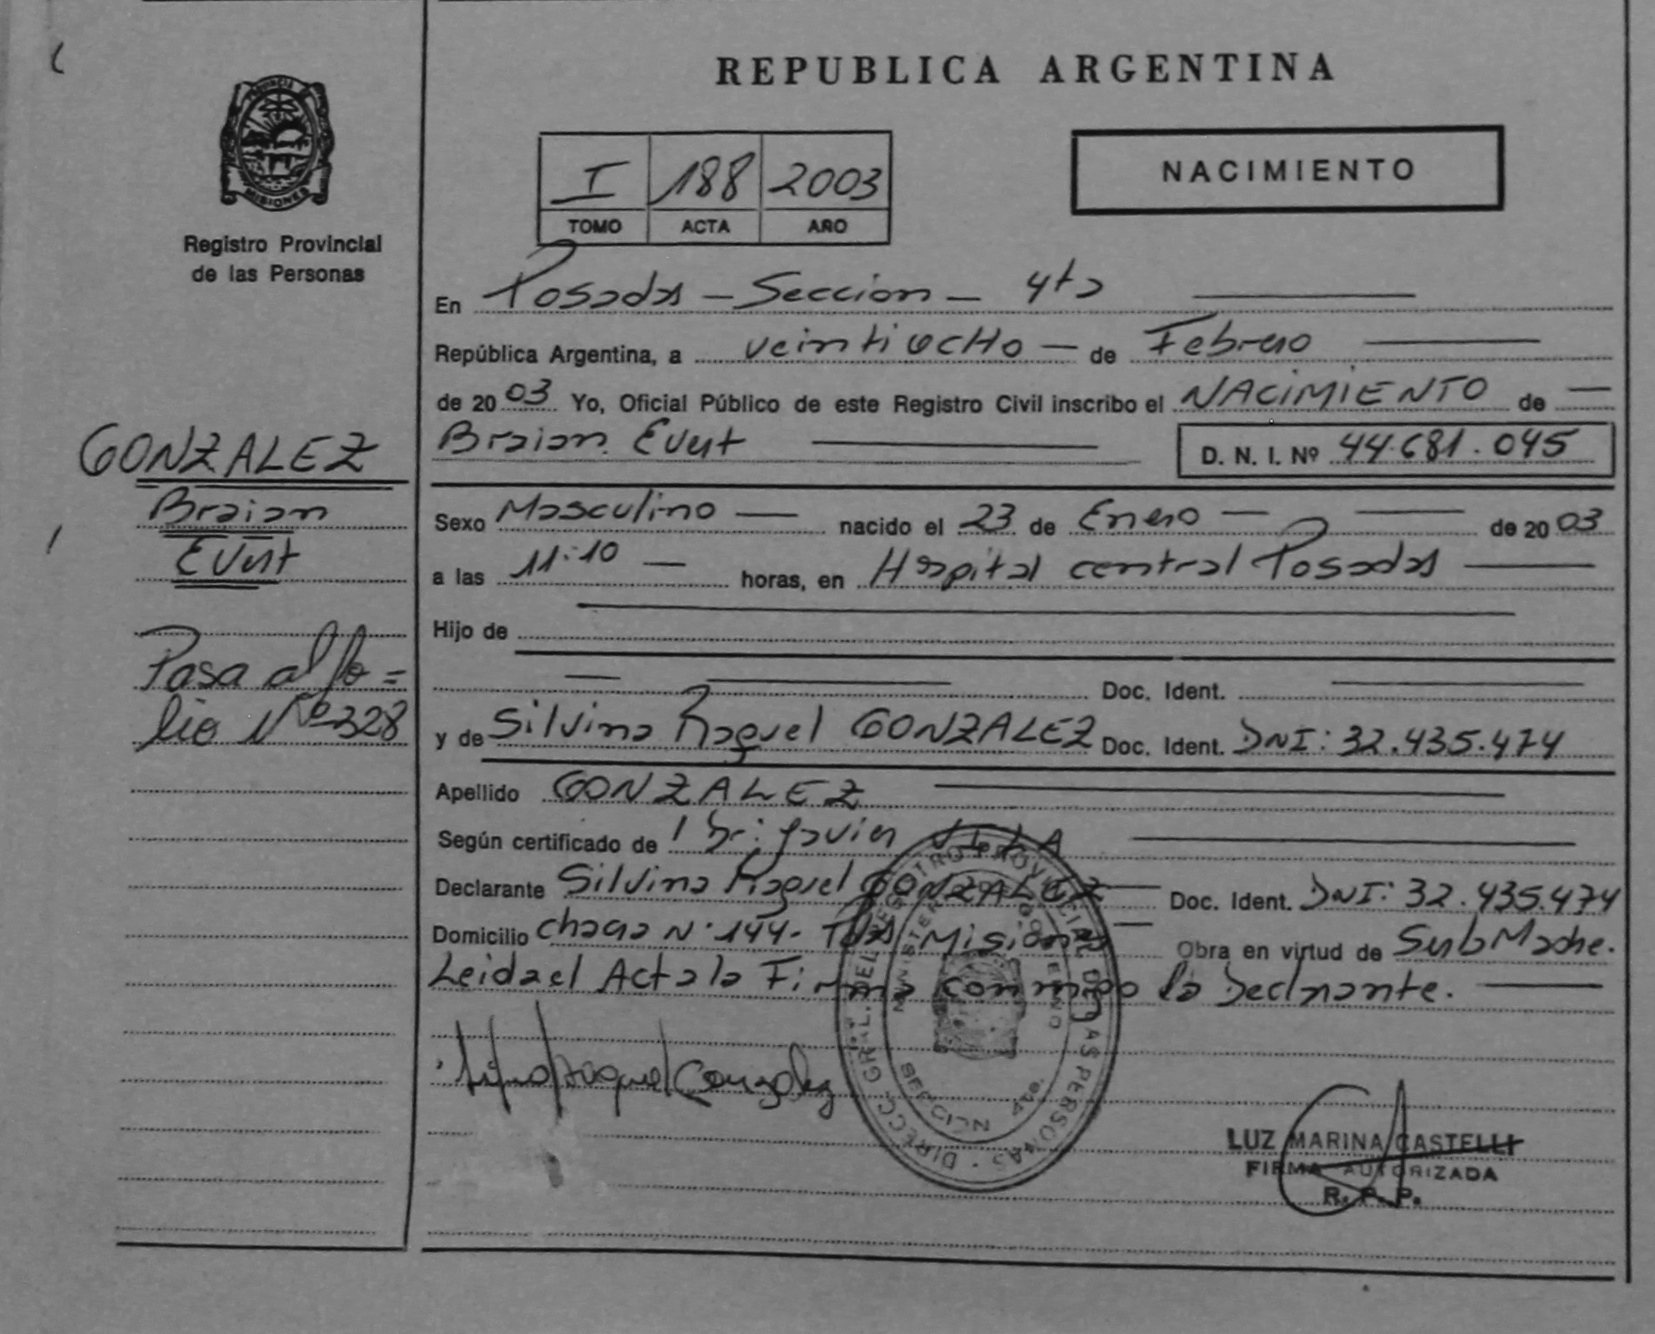 REPUBLICA ARGENTINA
PROVINCIA DE MISIONES
Registro Provincial
de las Personas
I 188 2003
TOMO ACTA AÑO
NACIMIENTO
En Posadas - Seccion - 4ta
República Argentina, a veintiocho de Febrero
de 2003 Yo, Oficial Público de este Registro Civil inscribo el NACIMIENTO de
Braian Evert
D. N. I. Nº 44.681.045
GONZALEZ
Braian
Evert
Pasa al fo=
lio Nº 328
Sexo Masculino nacido el 23 de Enero de 2003
a las 11:10 horas, en Hospital central Posadas
Hijo de
Doc. Ident.
y de Silvina Raquel GONZALEZ Doc. Ident. DNI: 32.435.474
Apellido GONZALEZ
Según certificado de Dr: Javier VILLA
Declarante Silvina Raquel GONZALEZ Doc. Ident. DNI: 32.435.474
Domicilio Chacra N° 144- Pdas Misiones Obra en virtud de Ser la Madre.
Leida el Acta la Firma conmigo la Declarante.
Silvina Raquel Gonzalez
DIRECC. GRAL. DEL REGISTRO PROVINCIAL DE LAS PERSONAS
MINISTERIO DE GOBIERNO
SECCION 4ta.
LUZ MARINA CASTELLI
FIRMA AUTORIZADA
R. P. P.